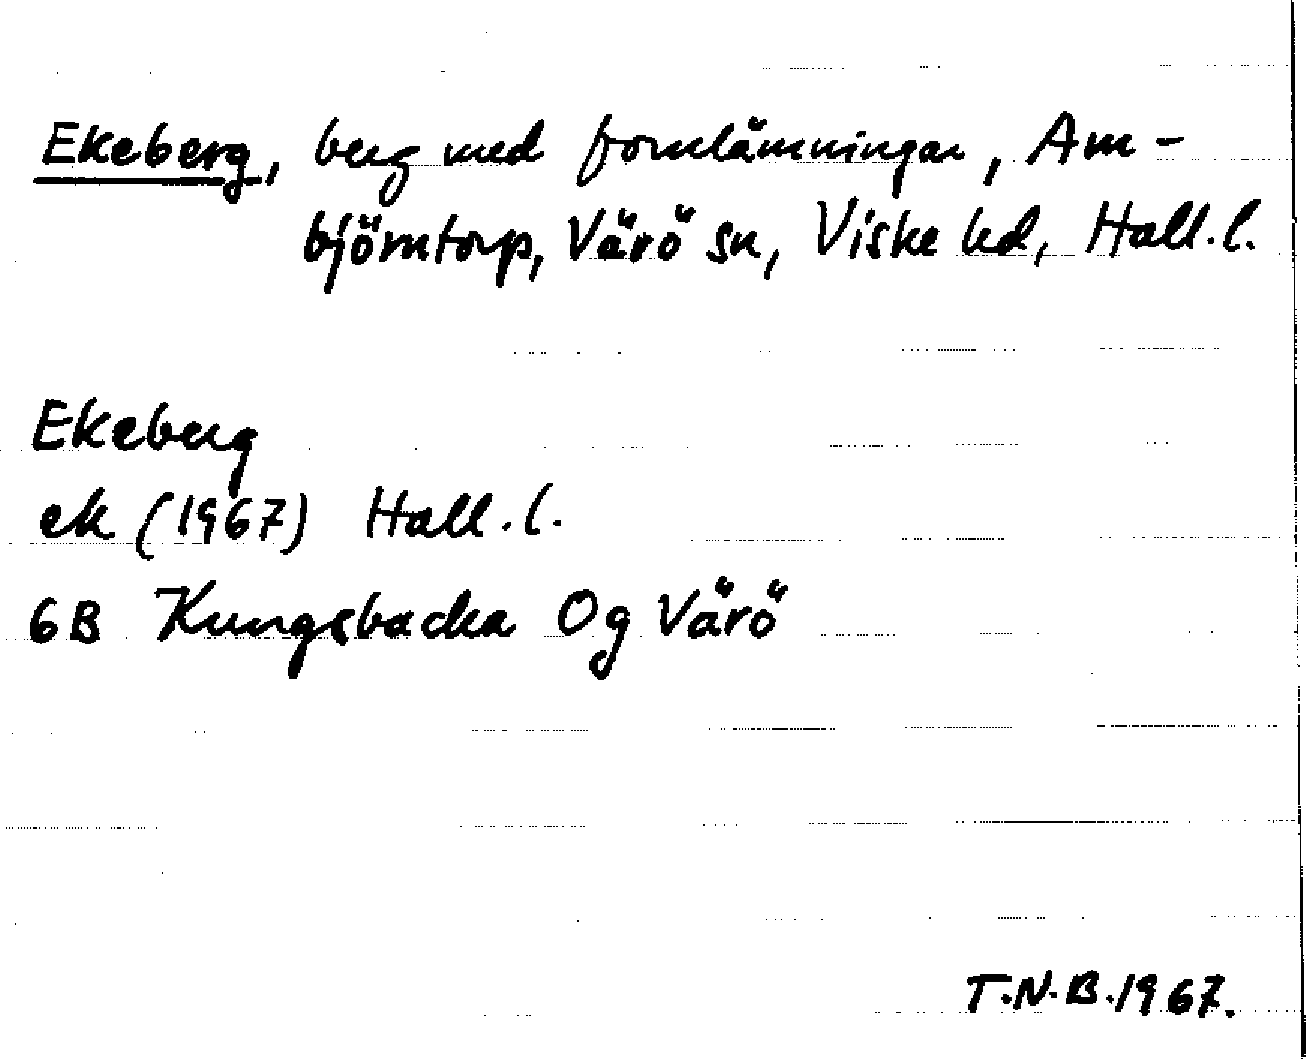 Ekeberg, berg med fornlämningar, Arn-
björntorp, Värö sn, Viske hd, Hall. l.
Ekeberg
ek (1967) Hall. l.
6B Kungsbacka Og Värö
T.N.B. 1967.